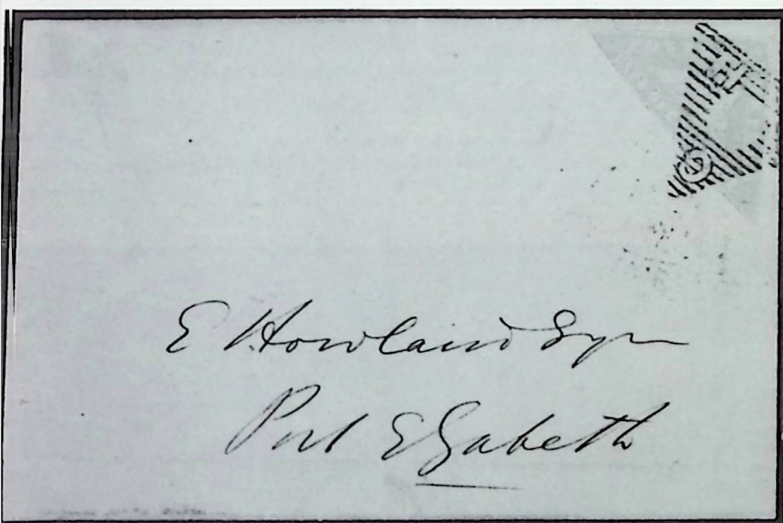 E Howland Esqr
Port Elizabeth